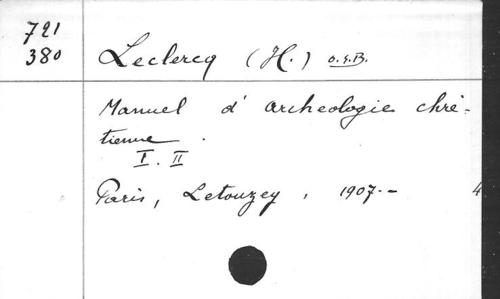 721
380
Leclercq (H.) O.S.B.
Manuel d'archeologie chré-
tienne.
I. II
Paris, Letouzey, 1907.-
4